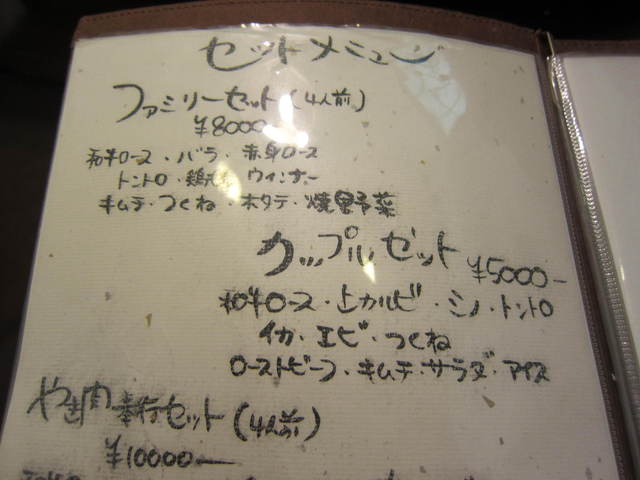 セットメニュー
ファミリーセット(4人前)
¥8000
和牛ロース・バラ・赤身ロース
トントロ・鶏 ウィンナー
キムチ・つくね・ホタテ・焼野菜
カップルセット
¥5000-
和牛ロース・上カルビ・ミノ・トントロ
イカ・エビ・つくね
ローストビーフ・キムチ・サラダ・アイス
やき肉奉行セット(4人前)
¥10000-